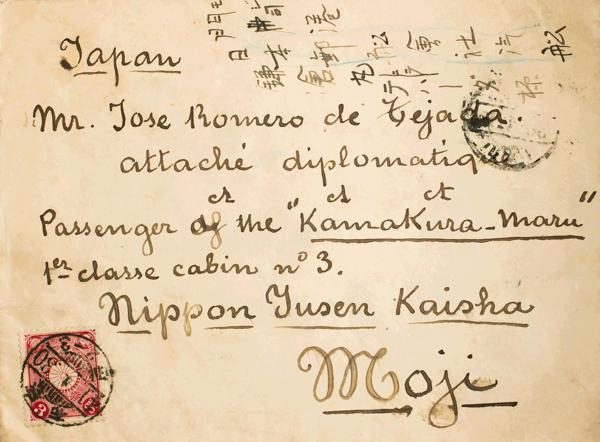 門司港
日本郵船會社汽船
鎌倉丸
様
Japan
Mr. Jose Romero de Tejada.
attaché diplomatiq
Passenger of the "Kamakura-Maru"
1er classe cabin nº 3.
Nippon Yusen Kaisha
Moji
3